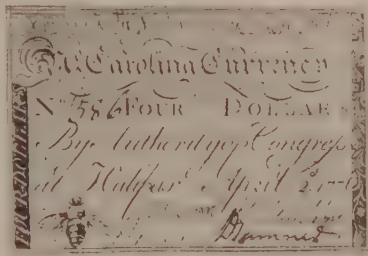 N. Carolina Currency
No 586 FOUR DOLLARS
By Authority of Congress
at Halifax April 2
FOUR DOLLARS